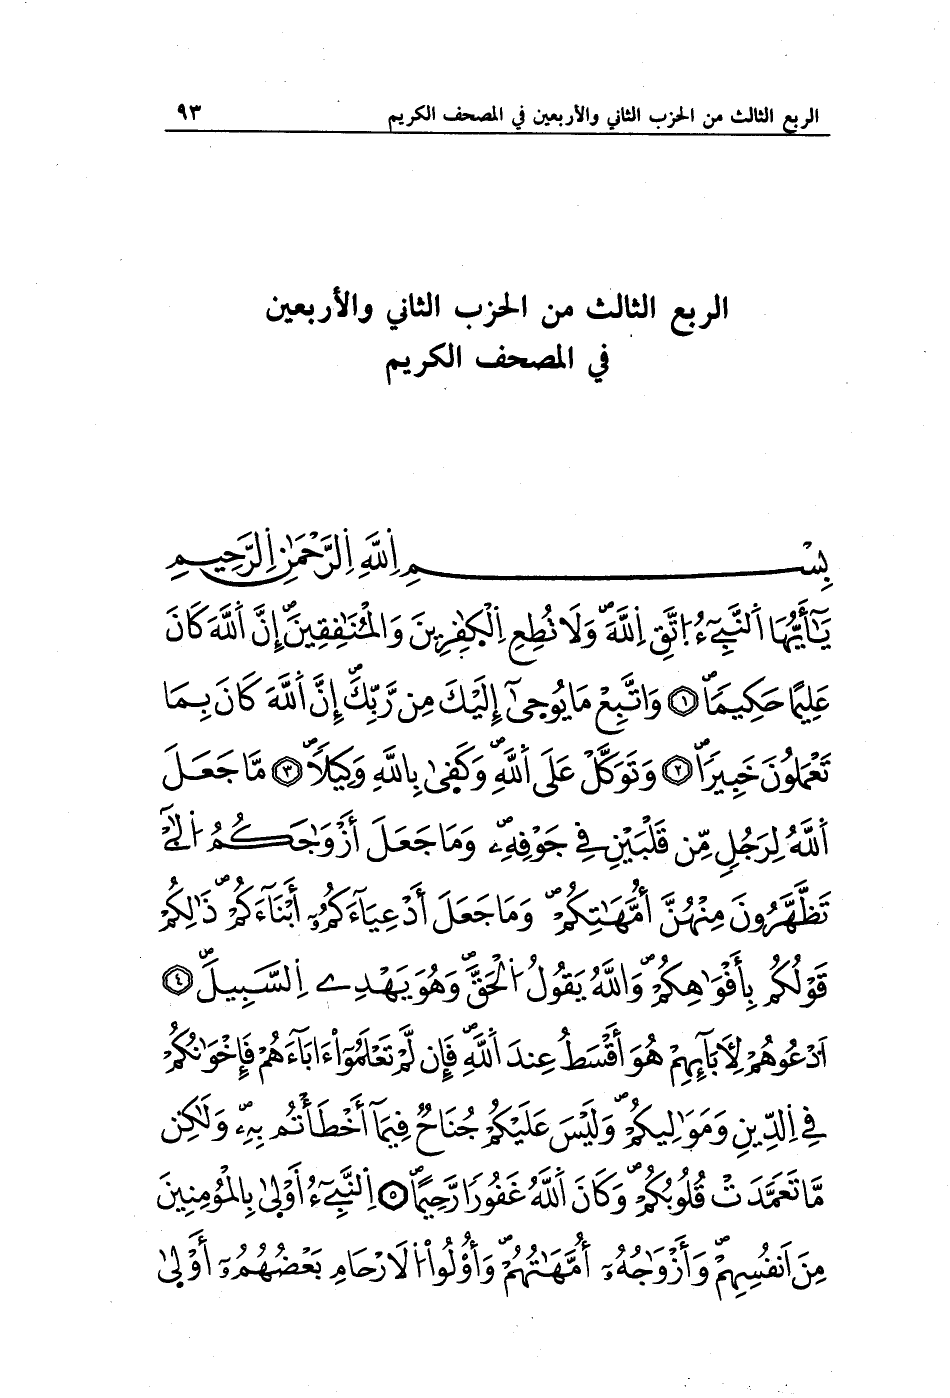 الربع الثالث من الحزب الثاني والأربعين في المصحف الكريم ٩٣
الربع الثالث من الحزب الثاني والأربعين
في المصحف الكريم
بِسْمِ اِللَّهِ اِلرَّحْمَٰنِ اِلرَّحِيمِ
يَٰٓأَيُّهَا اَلنَّبِےٓءُ اُتَّقِ اِللَّهَۖ وَلَا تُطِعِ اِلْكَٰفِرِينَ وَالْمُنَٰفِقِينَۖ إِنَّ اَللَّهَ كَانَ
عَلِيماً حَكِيماًۖ ١ وَاتَّبِعْ مَا يُوحَىٰٓ إِلَيْكَ مِن رَّبِّكَۖ إِنَّ اَللَّهَ كَانَ بِمَا
تَعْمَلُونَ خَبِيراًۖ ٢ وَتَوَكَّلْ عَلَى اَللَّهِۖ وَكَفَىٰ بِاللَّهِ وَكِيلاًۖ ٣ مَّا جَعَلَ
اَللَّهُ لِرَجُلٍ مِّن قَلْبَيْنِ فِے جَوْفِهِۦۖ وَمَا جَعَلَ أَزْوَٰجَكُمُ اُلَٰٓـِٔے
تَظَّهَّرُونَ مِنْهُنَّ أُمَّهَٰتِكُمْۖ وَمَا جَعَلَ أَدْعِيَآءَكُمُۥٓ أَبْنَآءَكُمْۖ ذَٰلِكُمْ
قَوْلُكُم بِأَفْوَٰهِكُمْۖ وَاللَّهُ يَقُولُ اُلْحَقَّۖ وَهُوَ يَهْدِے اِلسَّبِيلَۖ ٤
اَدْعُوهُمْ لِأٓبَآئِهِمْ هُوَ أَقْسَطُ عِندَ اَللَّهِۖ فَإِن لَّمْ تَعْلَمُوٓاْ ءَابَآءَهُمْ فَإِخْوَٰنُكُمْ
فِے اِلدِّينِ وَمَوَٰلِيكُمْۖ وَلَيْسَ عَلَيْكُمْ جُنَاحٌ فِيمَآ أَخْطَأْتُم بِهِۦۖ وَلَٰكِن
مَّا تَعَمَّدَتْ قُلُوبُكُمْۖ وَكَانَ اَللَّهُ غَفُوراً رَّحِيماًۖ ٥ اِلنَّبِےٓءُ أَوْلَىٰ بِالْمُؤْمِنِينَ
مِنَ اَنفُسِهِمْۖ وَأَزْوَٰجُهُۥٓ أُمَّهَٰتُهُمْۖ وَأُوْلُواْ اُلَارْحَامِ بَعْضُهُمُۥٓ أَوْلَىٰ